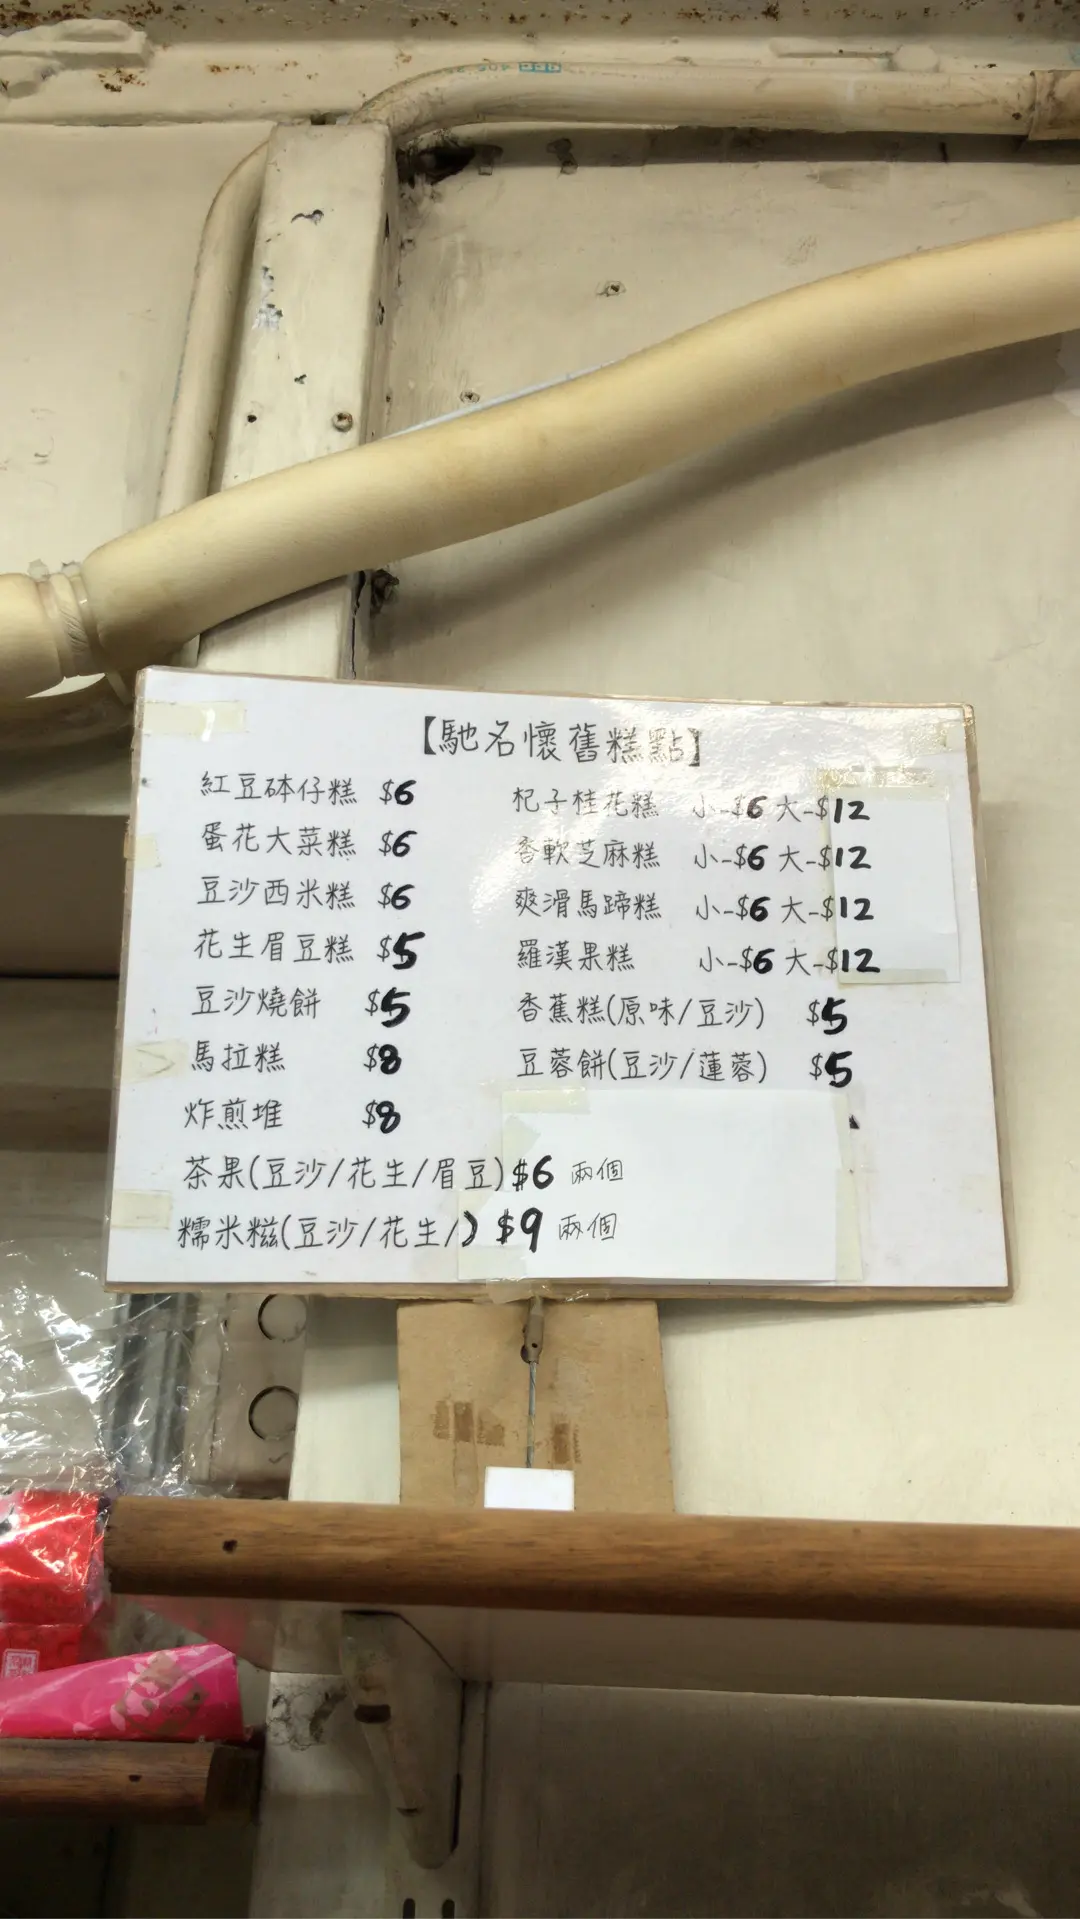 【馳名懷舊糕點】
紅豆砵仔糕 $6
蛋花大菜糕 $6
豆沙西米糕 $6
花生眉豆糕 $5
豆沙燒餅 $5
馬拉糕 $8
炸煎堆 $8
杞子桂花糕 小-$6 大-$12
香軟芝麻糕 小-$6 大-$12
爽滑馬蹄糕 小-$6 大-$12
羅漢果糕 小-$6 大-$12
香蕉糕(原味/豆沙) $5
豆蓉餅(豆沙/蓮蓉) $5
茶果(豆沙/花生/眉豆)$6 兩個
糯米糍(豆沙/花生/) $9 兩個